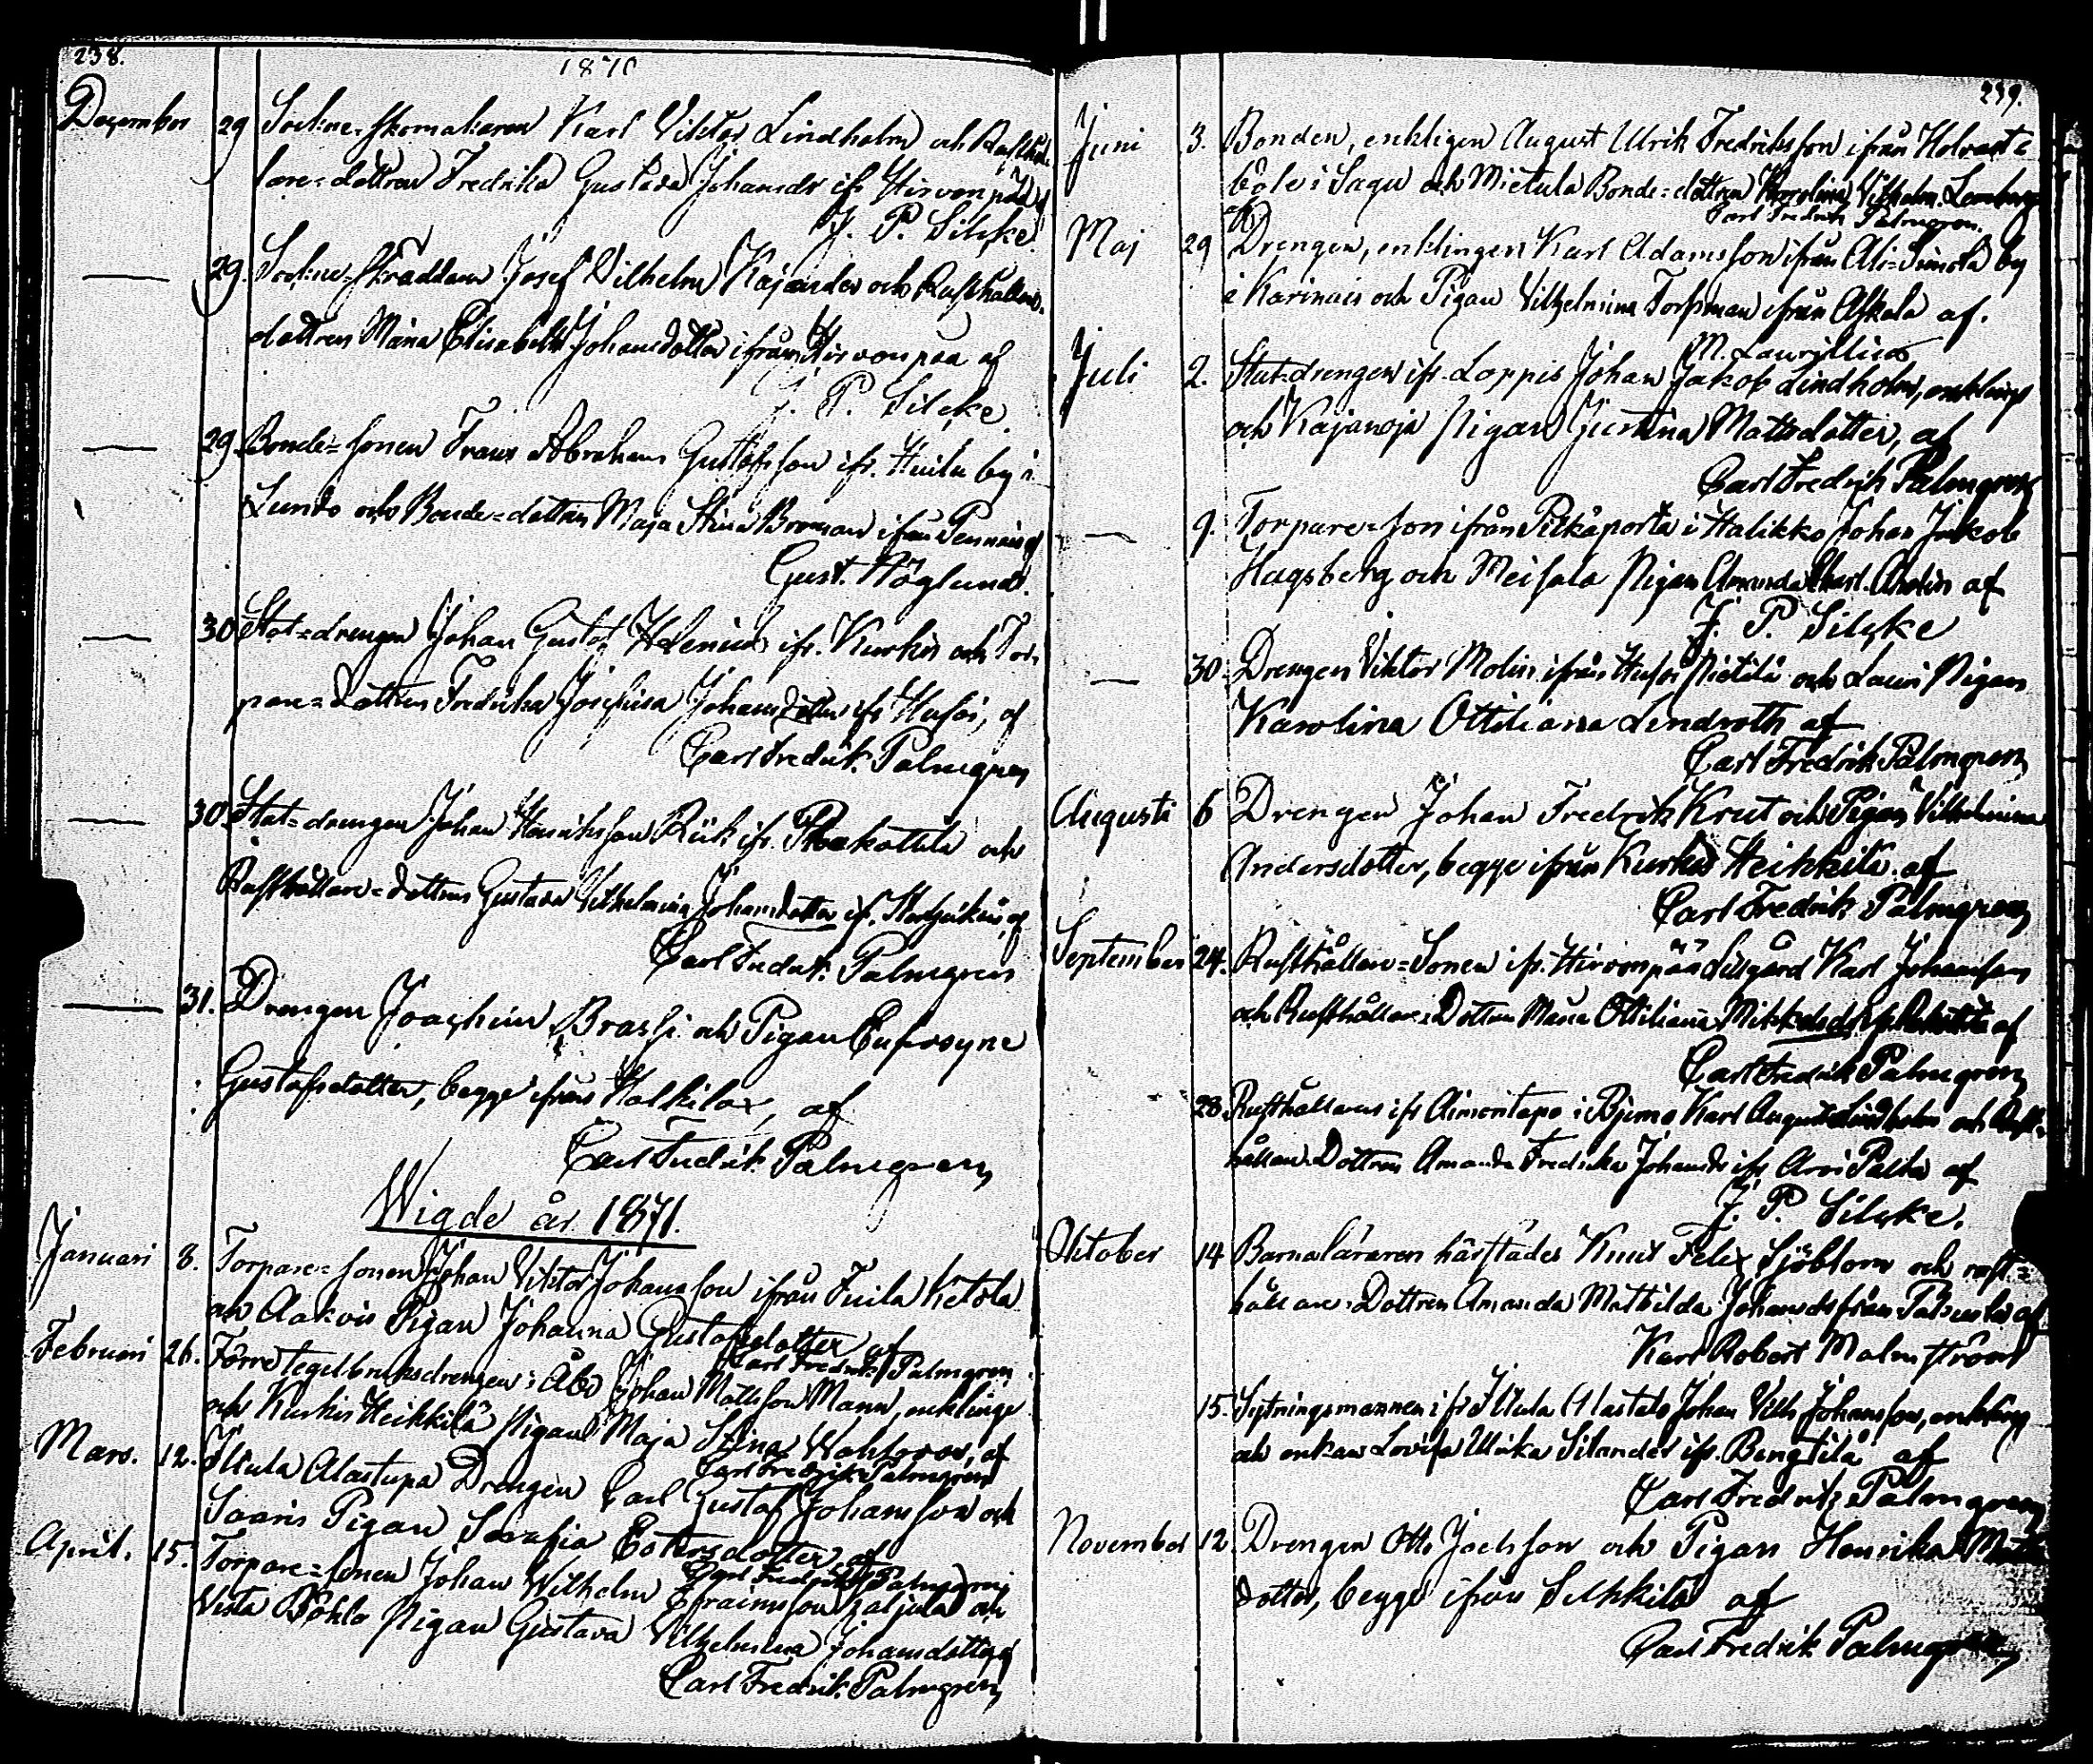 238.
1870
December 29 Sockne-skomakaren Karl Viktor Lindholm och Rusthål-
lare-dottren Fredrika Gustava Johansdr ifr. Hirvonpää af
J. P. Silcke.
— 29. Sockne-skräddaren Josef Vilhelm Kajander och Rusthållare-
dottren Maria Elisabeth Johansdotter ifrån Hirvonpää af
J. P. Silcke
— 29. Bonde-sonen Frans Abraham Gustafsson ifr. by i
Lundo och Bonde-dottren Maja Stina ifrån af
Gust. Höglund.
— 30 Stat-drengen Johan Gustaf Helenius ifr. Kurkis och Tor-
pare-dottren Fredrika Josefina Johansdotter ifr. af
Carl Fredrik Palmgren
— 30. Stat-drengen Johan Henriksson Riik ifr. och
Rusthållare-dottren Gustava Vilhelmina Johansdotter ifr. af
Carl Fredrik Palmgren
— 31. Drengen Joachim och Pigan Eufrosyne
Gustafsdotter, begge ifrån af
Carl Fredrik Palmgren
Wigde år 1871.
Januari 8. Torpare-sonen Johan Viktor Johansson ifrån Ketola
och Pigan Johanna Gustafsdotter af
Carl Fredrik Palmgren
Februari 26. Förre tegelbruksdrengen i Åbo Johan Mattsson Mann, enklinge
och Kurkis Heikkilä Pigan Maja Stina af
Carl Fredrik Palmgren
Mars. 12. Iltula Alastupa Drengen Carl Gustaf Johansson och
Saaris Pigan Serafia af
Carl Fredrik Palmgren
April. 15. Torpare-sonen Johan Wilhelm Efraimsson och
Vista Pigan Gustava Vilhelmina Johansdotter af
Carl Fredrik Palmgren
239.
Juni 3. Bonden, enklingen August Ulrik Fredriksson ifrån
böle i Sagu och Mietula Bonde-dottren Karolina Vilhelm. af
Carl Fredrik Palmgren.
Maj 29 Drengen, enklingen Karl Adamsson ifrån Ali-Simola by
i Karinais och Pigan Vilhelmina Forsman ifrån Askala af.
M. Laurillius
Juli 2. Stat-drengen ifr. Loppis Johan Jakob Lindholm, enkling
och Kajanoja Pigan Justina Mattsdotter, af
Carl Fredrik Palmgren
— 9. Torpare-son ifrån i Halikko Johan Jakob
Hagsberg och Meisala Pigan Amanda af
J. P. Silcke
— 30. Drengen Viktor Molin ifrån och Lauri Pigan
Karolina Ottiliana Lindroth af
Carl Fredrik Palmgren
Augusti 6 Drengen Johan Fredrik Krut och Pigan Vilhelmina
Andersdotter, begge ifrån Kurkis Heikkilä af
Carl Fredrik Palmgren
September 24. Rusthållare-Sonen ifr. Hirvonpää Lillgård Karl Johansson
och Rusthållare-Dottren Maria Ottiliana af
Carl Fredrik Palmgren
28. Rusthållaren ifr. i Bjerno Karl August Lindholm och Rust-
hållare-Dottren Amanda Fredrika Johansdr ifr. af
J. P. Silcke.
Oktober 14 Barnaläraren härstädes Knut Felix Sjöblom och rust-
hållare-Dottren Amanda Mathilda Johansdr från af
Karl Robert Malmström
15. Sytningsmannen ifr. Iltula Alastalo Johan Vilh. Johansson, enkling
och enkan Lovisa Ulrika Silander ifr. Bengtilä af
Carl Fredrik Palmgren
November 12 Drengen Otto Joelsson och Pigan Henrika
dotter, begge ifrån af
Carl Fredrik Palmgren